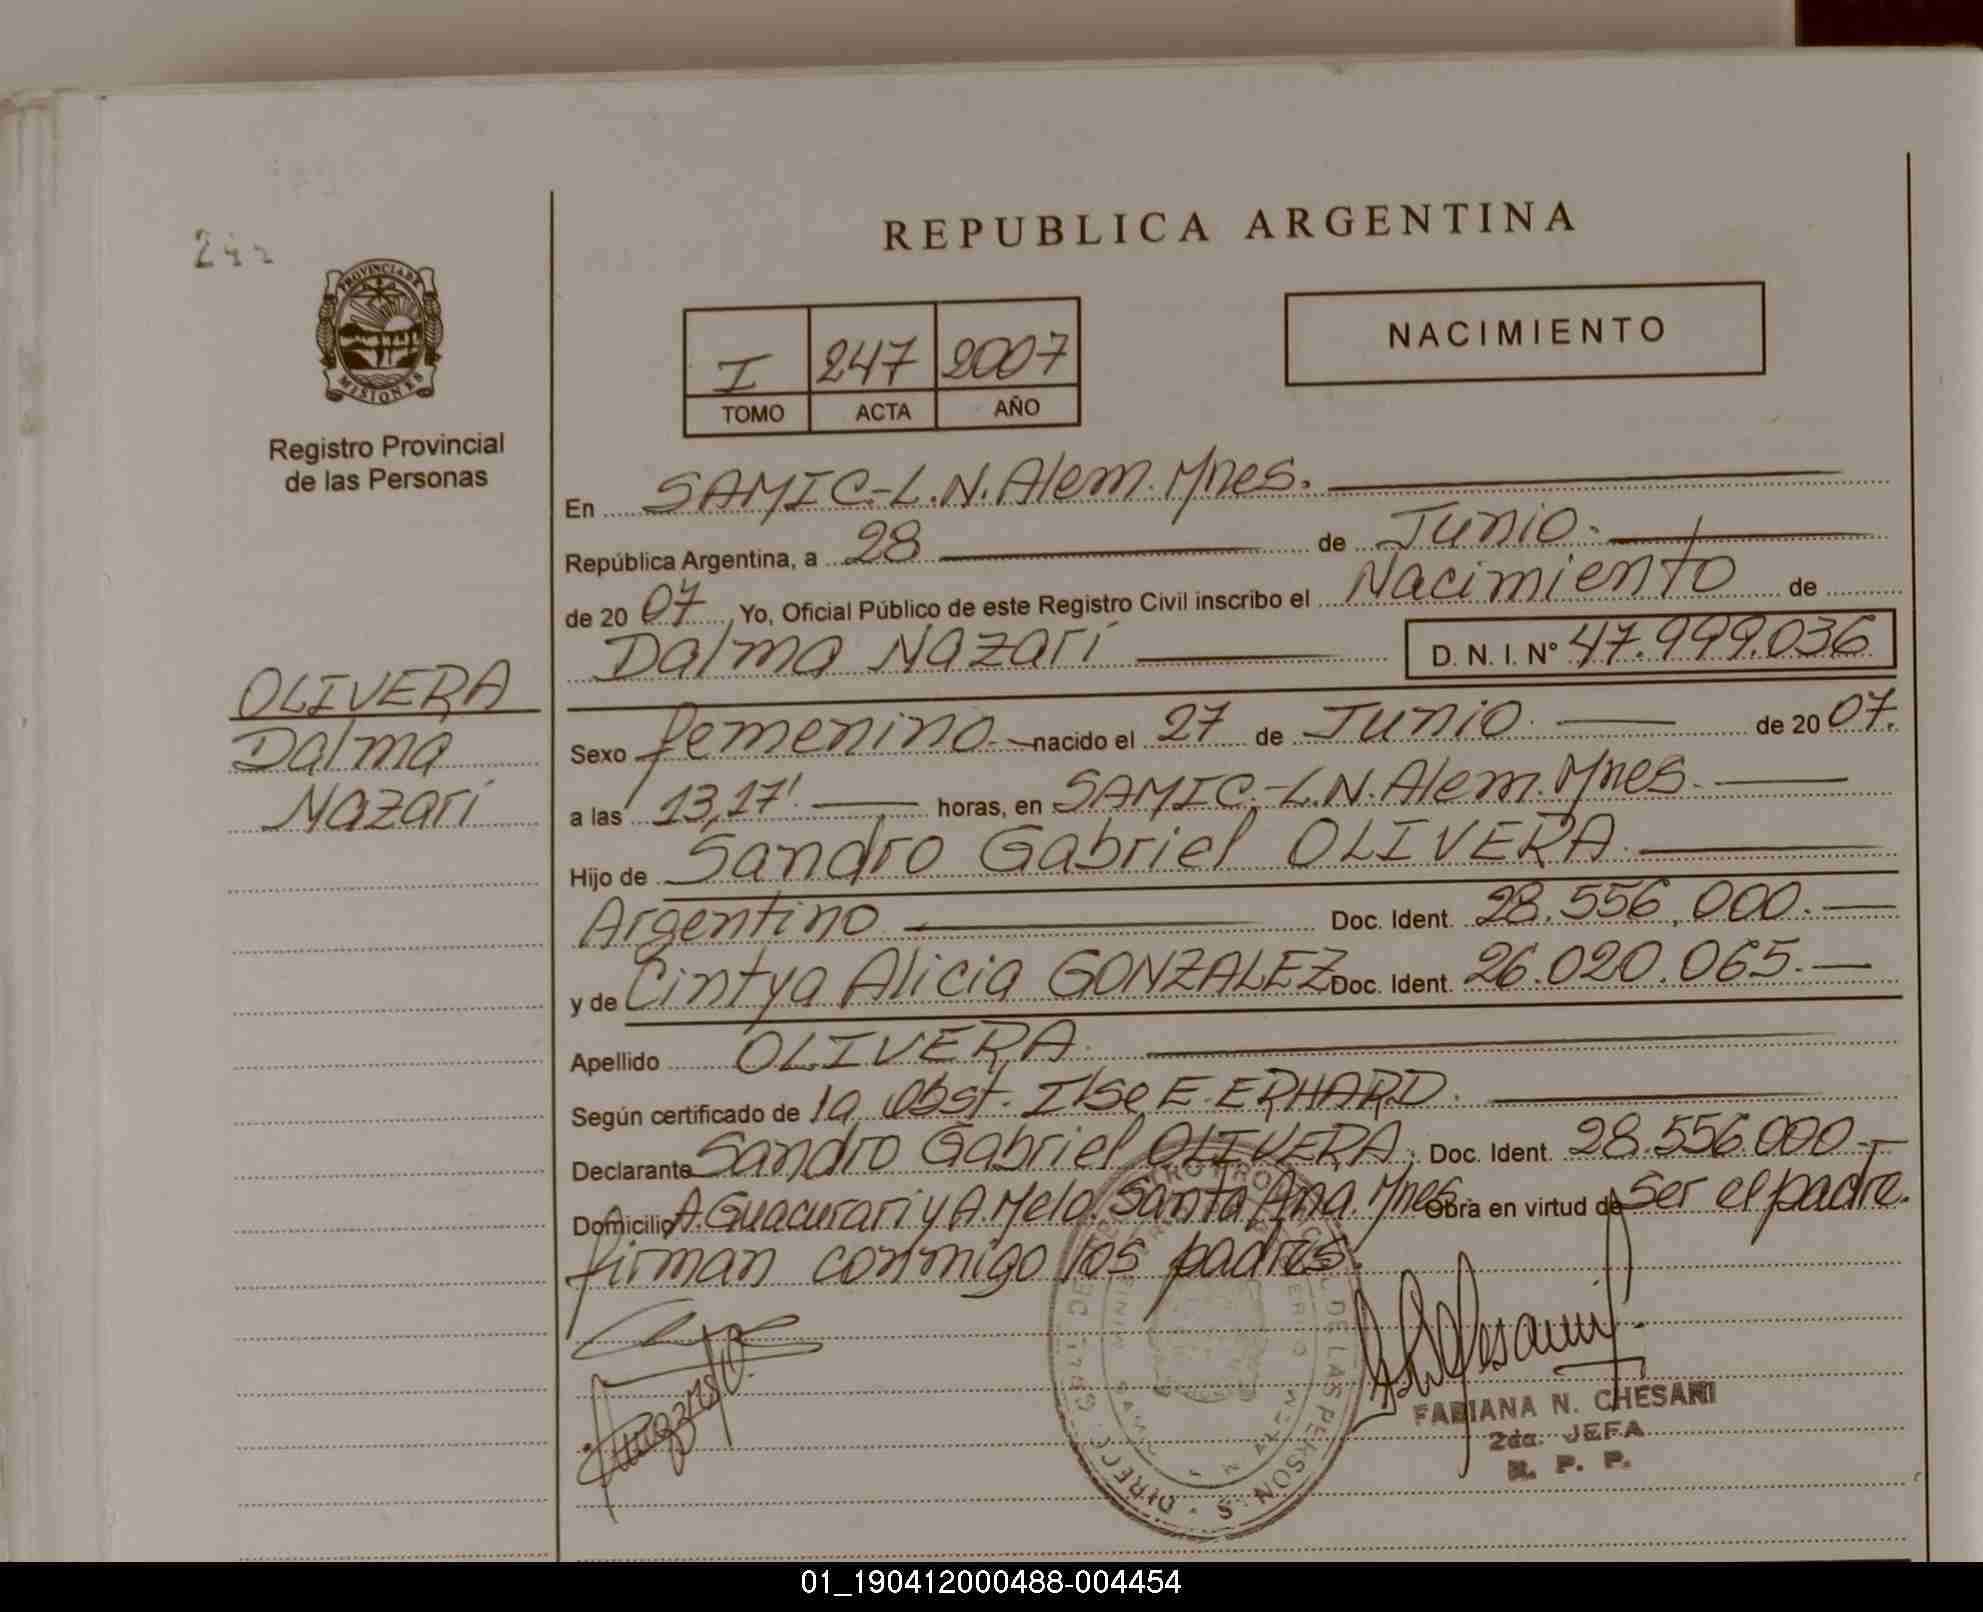 REPUBLICA ARGENTINA
PROVINCIA DE
MISIONES
Registro Provincial
de las Personas
I 247 2007
TOMO ACTA AÑO
NACIMIENTO
En SAMIC.-L.N.Alem.Mnes.
República Argentina, a 28 de Junio.
de 20 07 Yo, Oficial Público de este Registro Civil inscribo el Nacimiento de
Dalma Nazarí D. N. I. Nº 47.999.036
OLIVERA
Dalma
Nazarí
Sexo femenino nacido el 27 de Junio. de 20 07.
a las 13,17' horas, en SAMIC.-L.N.Alem.Mnes.
Hijo de Sandro Gabriel OLIVERA.
Argentino Doc. Ident. 28.556.000.
y de Cintya Alicia GONZALEZ Doc. Ident. 26.020.065.
Apellido OLIVERA.
Según certificado de la Obst. Ilse E. ERHARD.
Declarante Sandro Gabriel OLIVERA; Doc. Ident. 28.556.000.
Domicilio A.Guacurari y A.Melo. Santa Ana. Mnes Obra en virtud de ser el padre.
firman conmigo los padres.
FABIANA N. CHESANI
2da. JEFA
R. P. P.
01_190412000488-004454